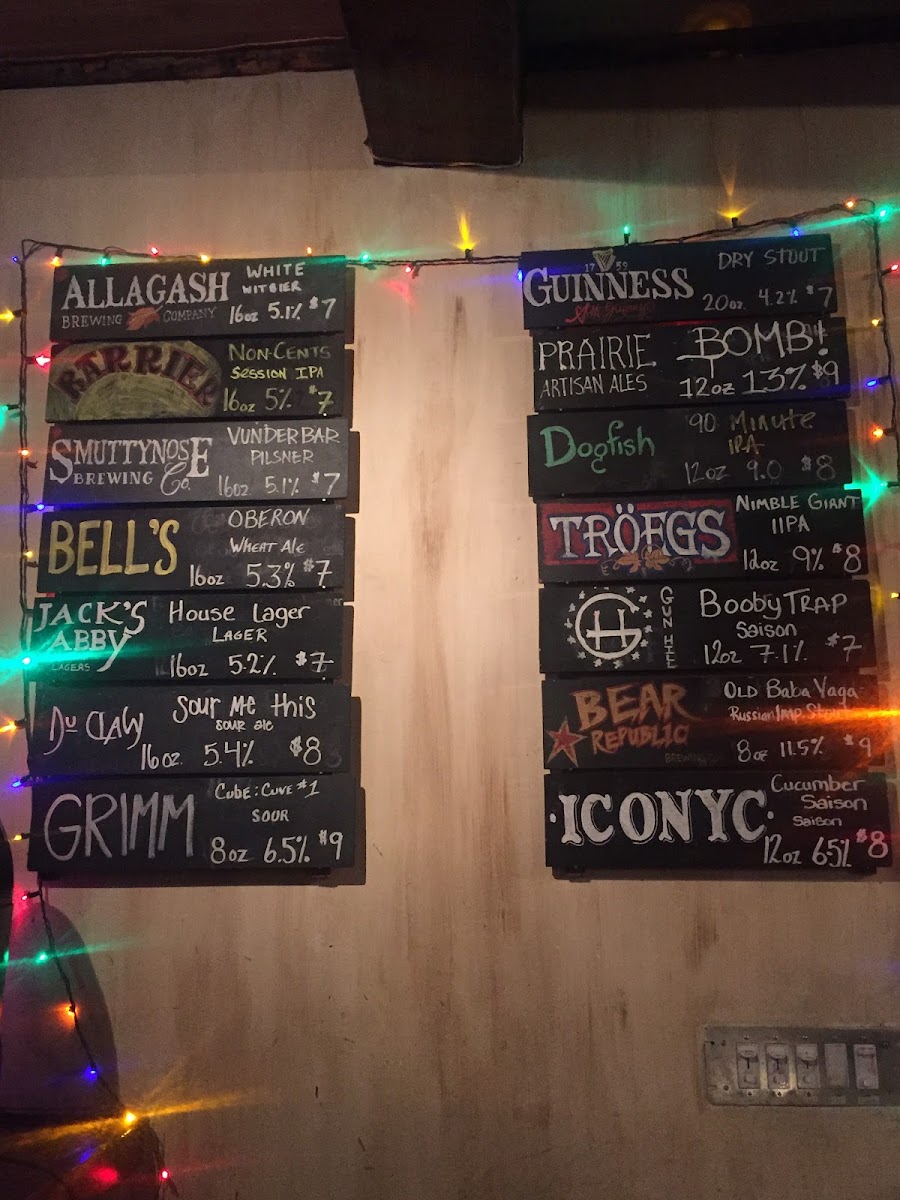 ALLAGASH
BREWING COMPANY
WHITE
WITBIER
16oz 5.1% $7
BARRIER
NON-CENTS
SESSION IPA
16oz 5% $7
SMUTTYNOSE
BREWING Co.
VUNDERBAR
PILSNER
16oz 5.1% $7
BELL'S
OBERON
WHEAT ALE
16oz 5.3% $7
JACK'S
ABBY
LAGERS
House Lager
LAGER
16oz 5.2% $7
DU CLAW
Sour Me this
SOUR ale
16oz 5.4% $8
GRIMM
CUBE: CUVE #1
SOUR
8oz 6.5% $9
1759
GUINNESS
DRY STOUT
20oz. 4.2% $7
PRAIRIE
ARTISAN ALES
BOMB!
12oz 13% $9
Dogfish
90 Minute
IPA
12oz 9.0 $8
TRÖEGS
NIMBLE GIANT
IIPA
12oz 9% $8
GH
GUN HILL
BOOBY TRAP
Saison
12oz 7.1% $7
BEAR
REPUBLIC
BREWING
OLD Baba Yaga
Russian Imp. Stout
8oz 11.5% $9
·ICONYC·
Cucumber
Saison
Saison
12oz 6.5% $8